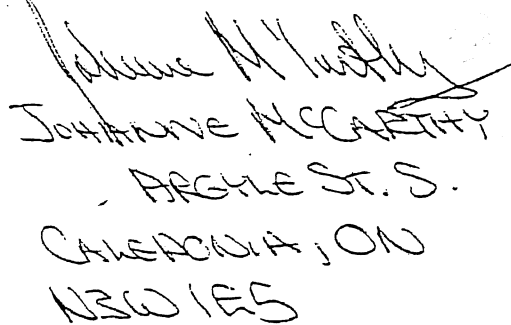 Johanne McCarthy
JOHANNE MCCARTHY
ARGYLE ST. S.
CALEDONIA, ON
N3W 1E5